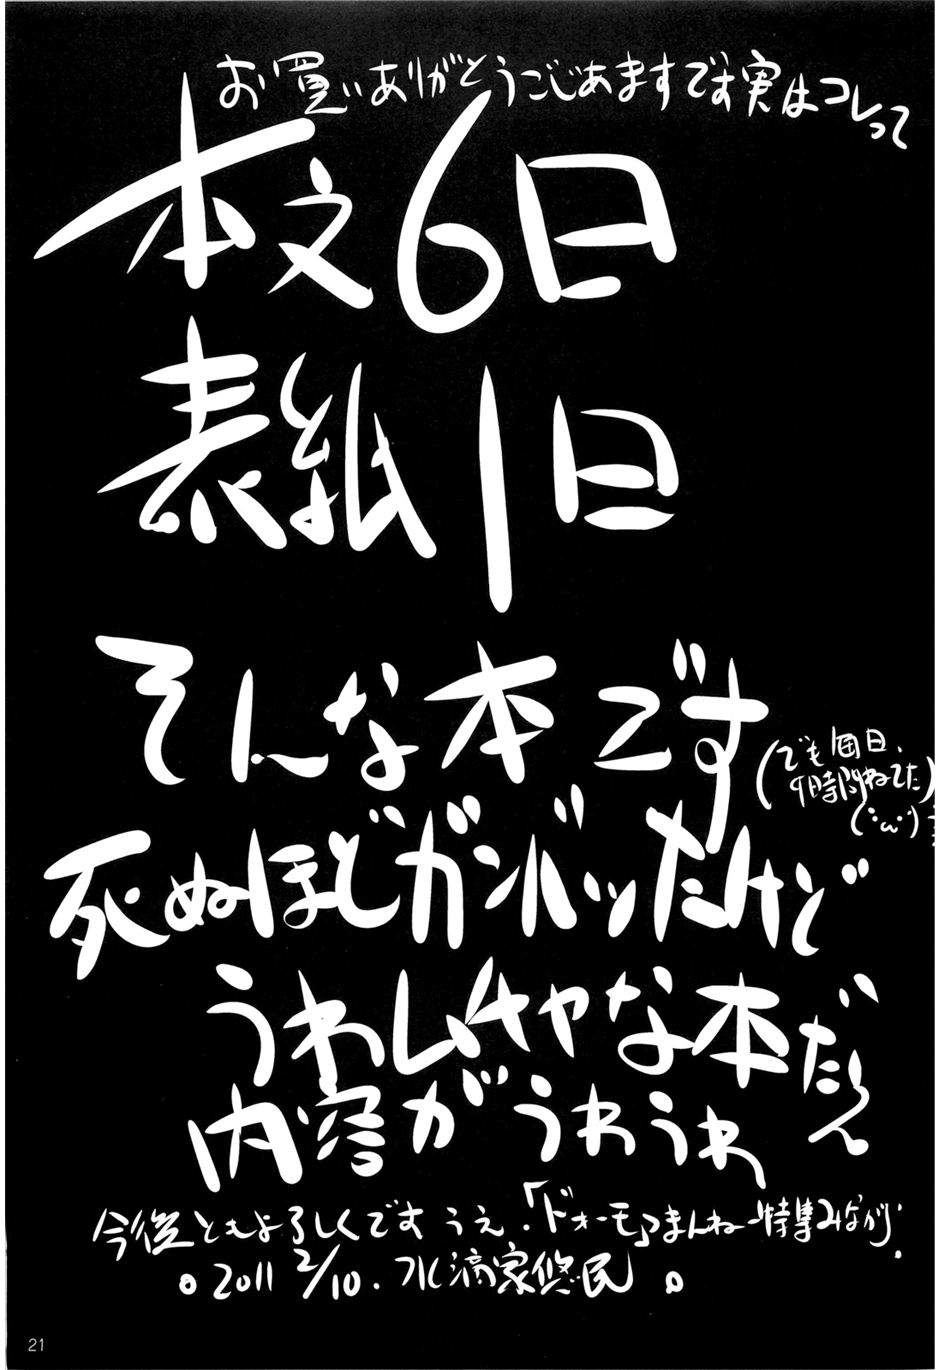 お買いありがとうごじあますです実はコレって
本文6日
表紙1日
そんな本です
(でも毎日、
9時間ねてた)
(´･ω･`)
死ぬほどガンバッたけど
うわムチャな本だ〜
内容がうわうわ
今後ともよろしくです うえ.「ドォーモ」まんねー特集みながら.
。2011 2/10. 水滴家悠民 。
21